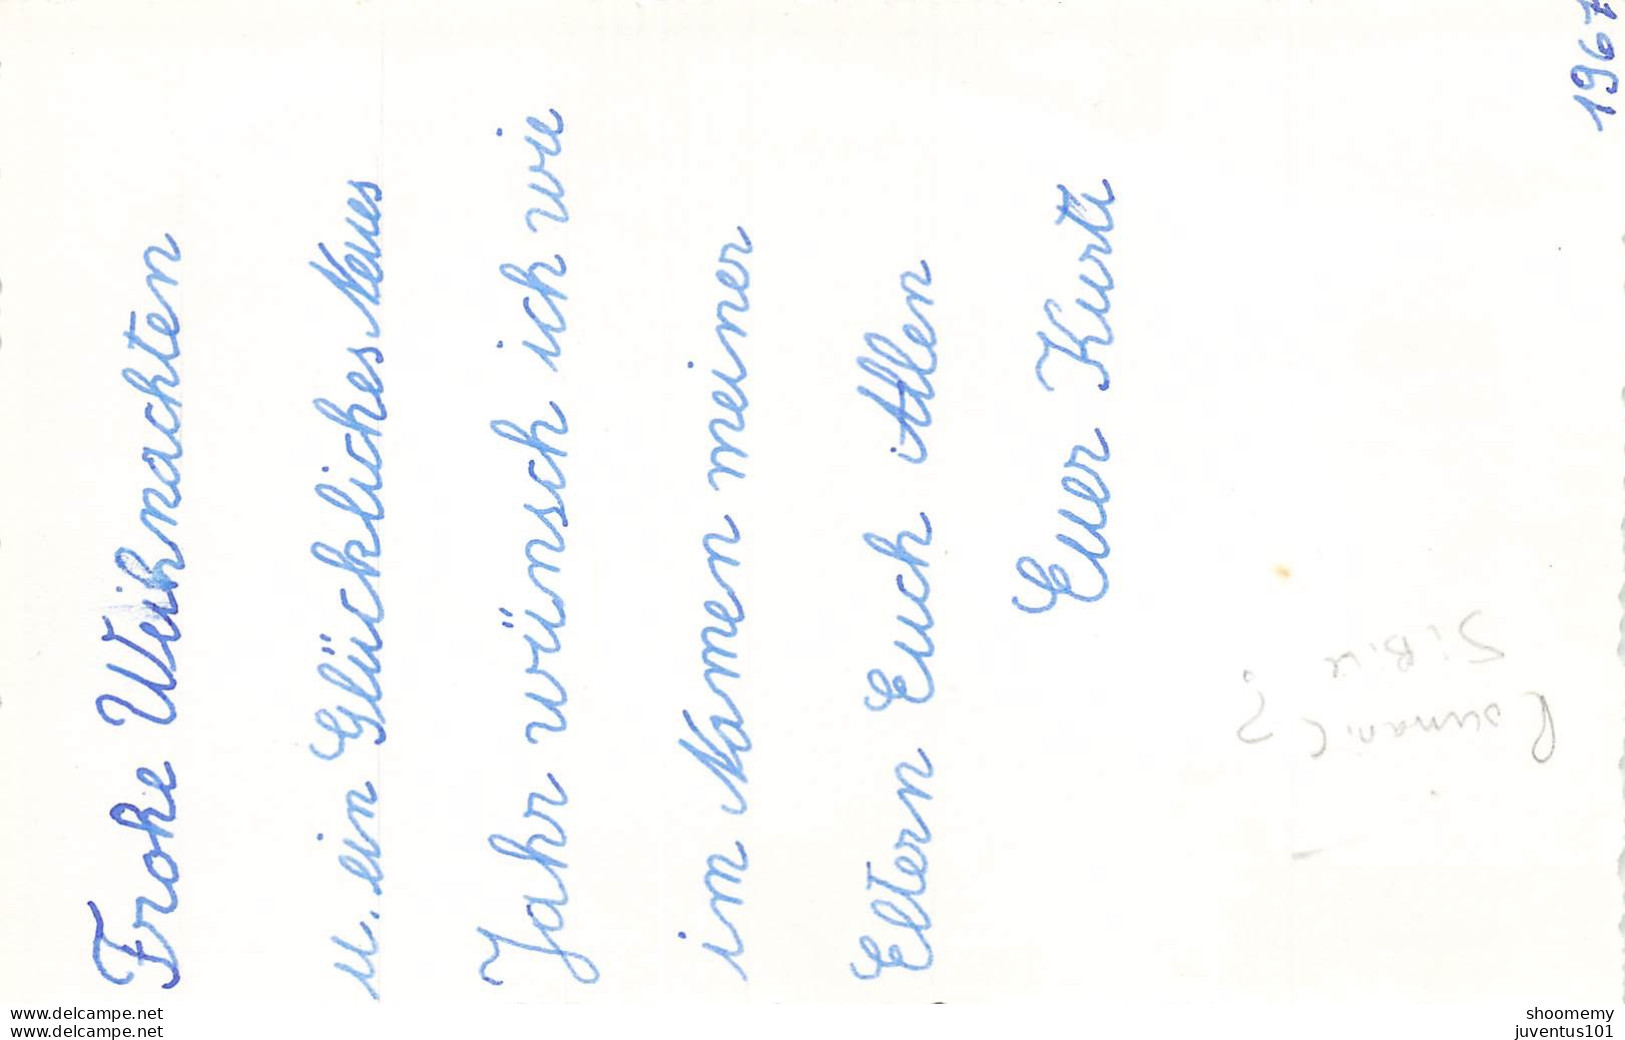 Frohe Weihnachten
u. ein Glückliches Neues
Jahr wünsch ich wie
im Namen meiner
Eltern Euch Allen
Euer Kurti
1967
www.delcampe.net
www.delcampe.net
shoomemy
juventus101